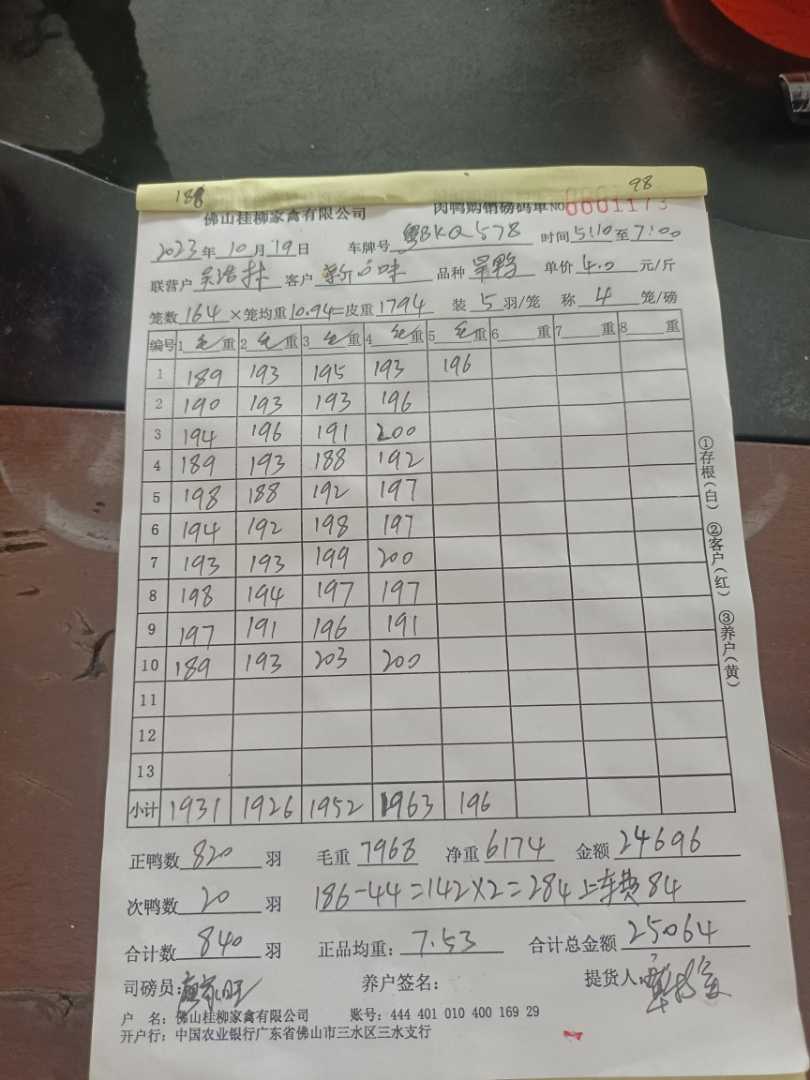 188 98
佛山桂柳家禽有限公司 肉鸭购销磅码单 NO 0001173
2023年10月19日 车牌号 粤BKQ578 时间5:10至7:00
联营户 客户 新 味 品种 旱鸭 单价 4.0 元/斤
笼数164×笼均重10.94=皮重1794 装5羽/笼 称4笼/磅
编号 1毛重 2毛重 3毛重 4毛重 5毛重 6重 7重 8重
1 189 193 195 193 196
2 190 193 193 196
3 194 196 191 200
4 189 193 188 192
5 198 188 192 197
6 194 192 198 197
7 193 193 199 200
8 198 194 197 197
9 197 191 196 191
10 189 193 203 200
11
12
13
小计 1931 1926 1952 1963 196
正鸭数 820 羽 毛重 7968 净重 6174 金额 24696
次鸭数 20 羽 186-44=142×2=284上车费84
合计数 840 羽 正品均重: 7.53 合计总金额 25064
司磅员: 养户签名: 提货人:
户 名: 佛山桂柳家禽有限公司 账号: 444 401 010 400 169 29
开户行: 中国农业银行广东省佛山市三水区三水支行
①存根(白) ②客户(红) ③养户(黄)